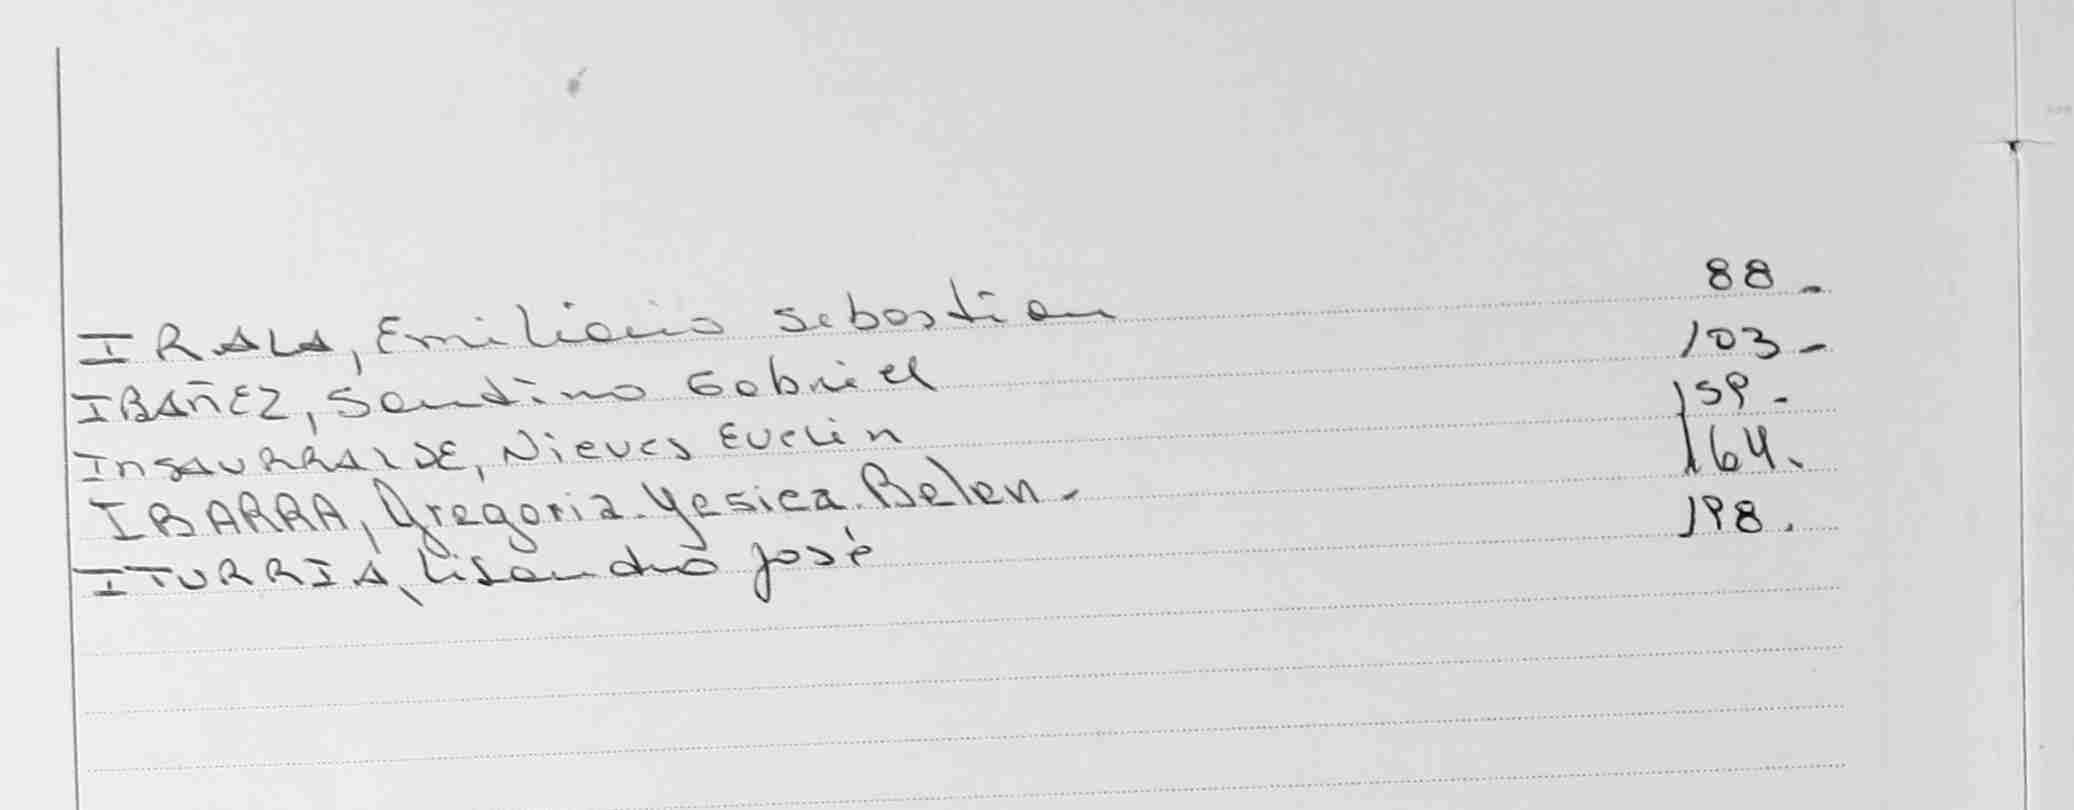 IRALA, Emiliano Sebastian 88-
IBAÑEZ, Santino Gabriel 103-
INSAURRALDE, Nieves Evelin 159-
IBARRA, Gregoria Yesica Belen- 164.
ITURRIA, Lisandro José 198.